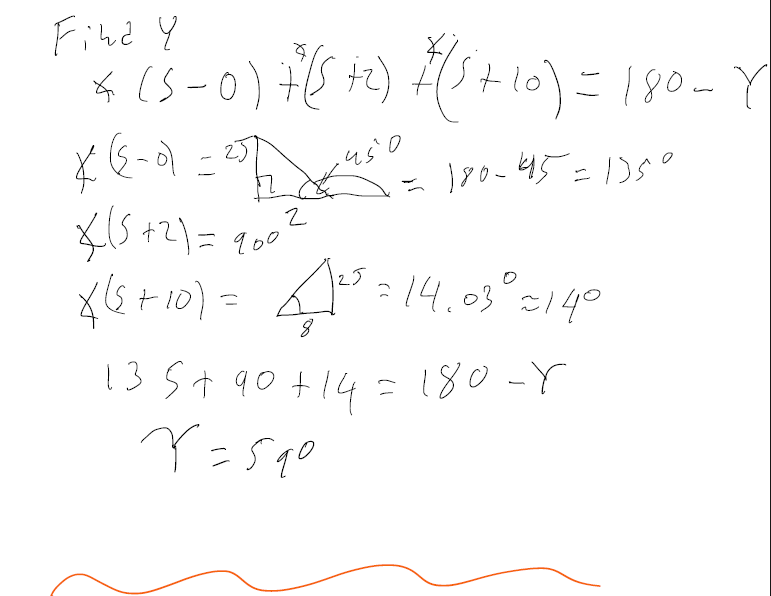 Find Y
∡(S-0) + ∡(S+2) + ∡(S+10) = 180 - Y
∡(S-0) = 25 2 45° = 180-45 = 135°
∡(S+2) = 90°
∡(S+10) = 25 8 = 14.03° ≈ 14°
135 + 90 + 14 = 180 - Y
Y = 59°